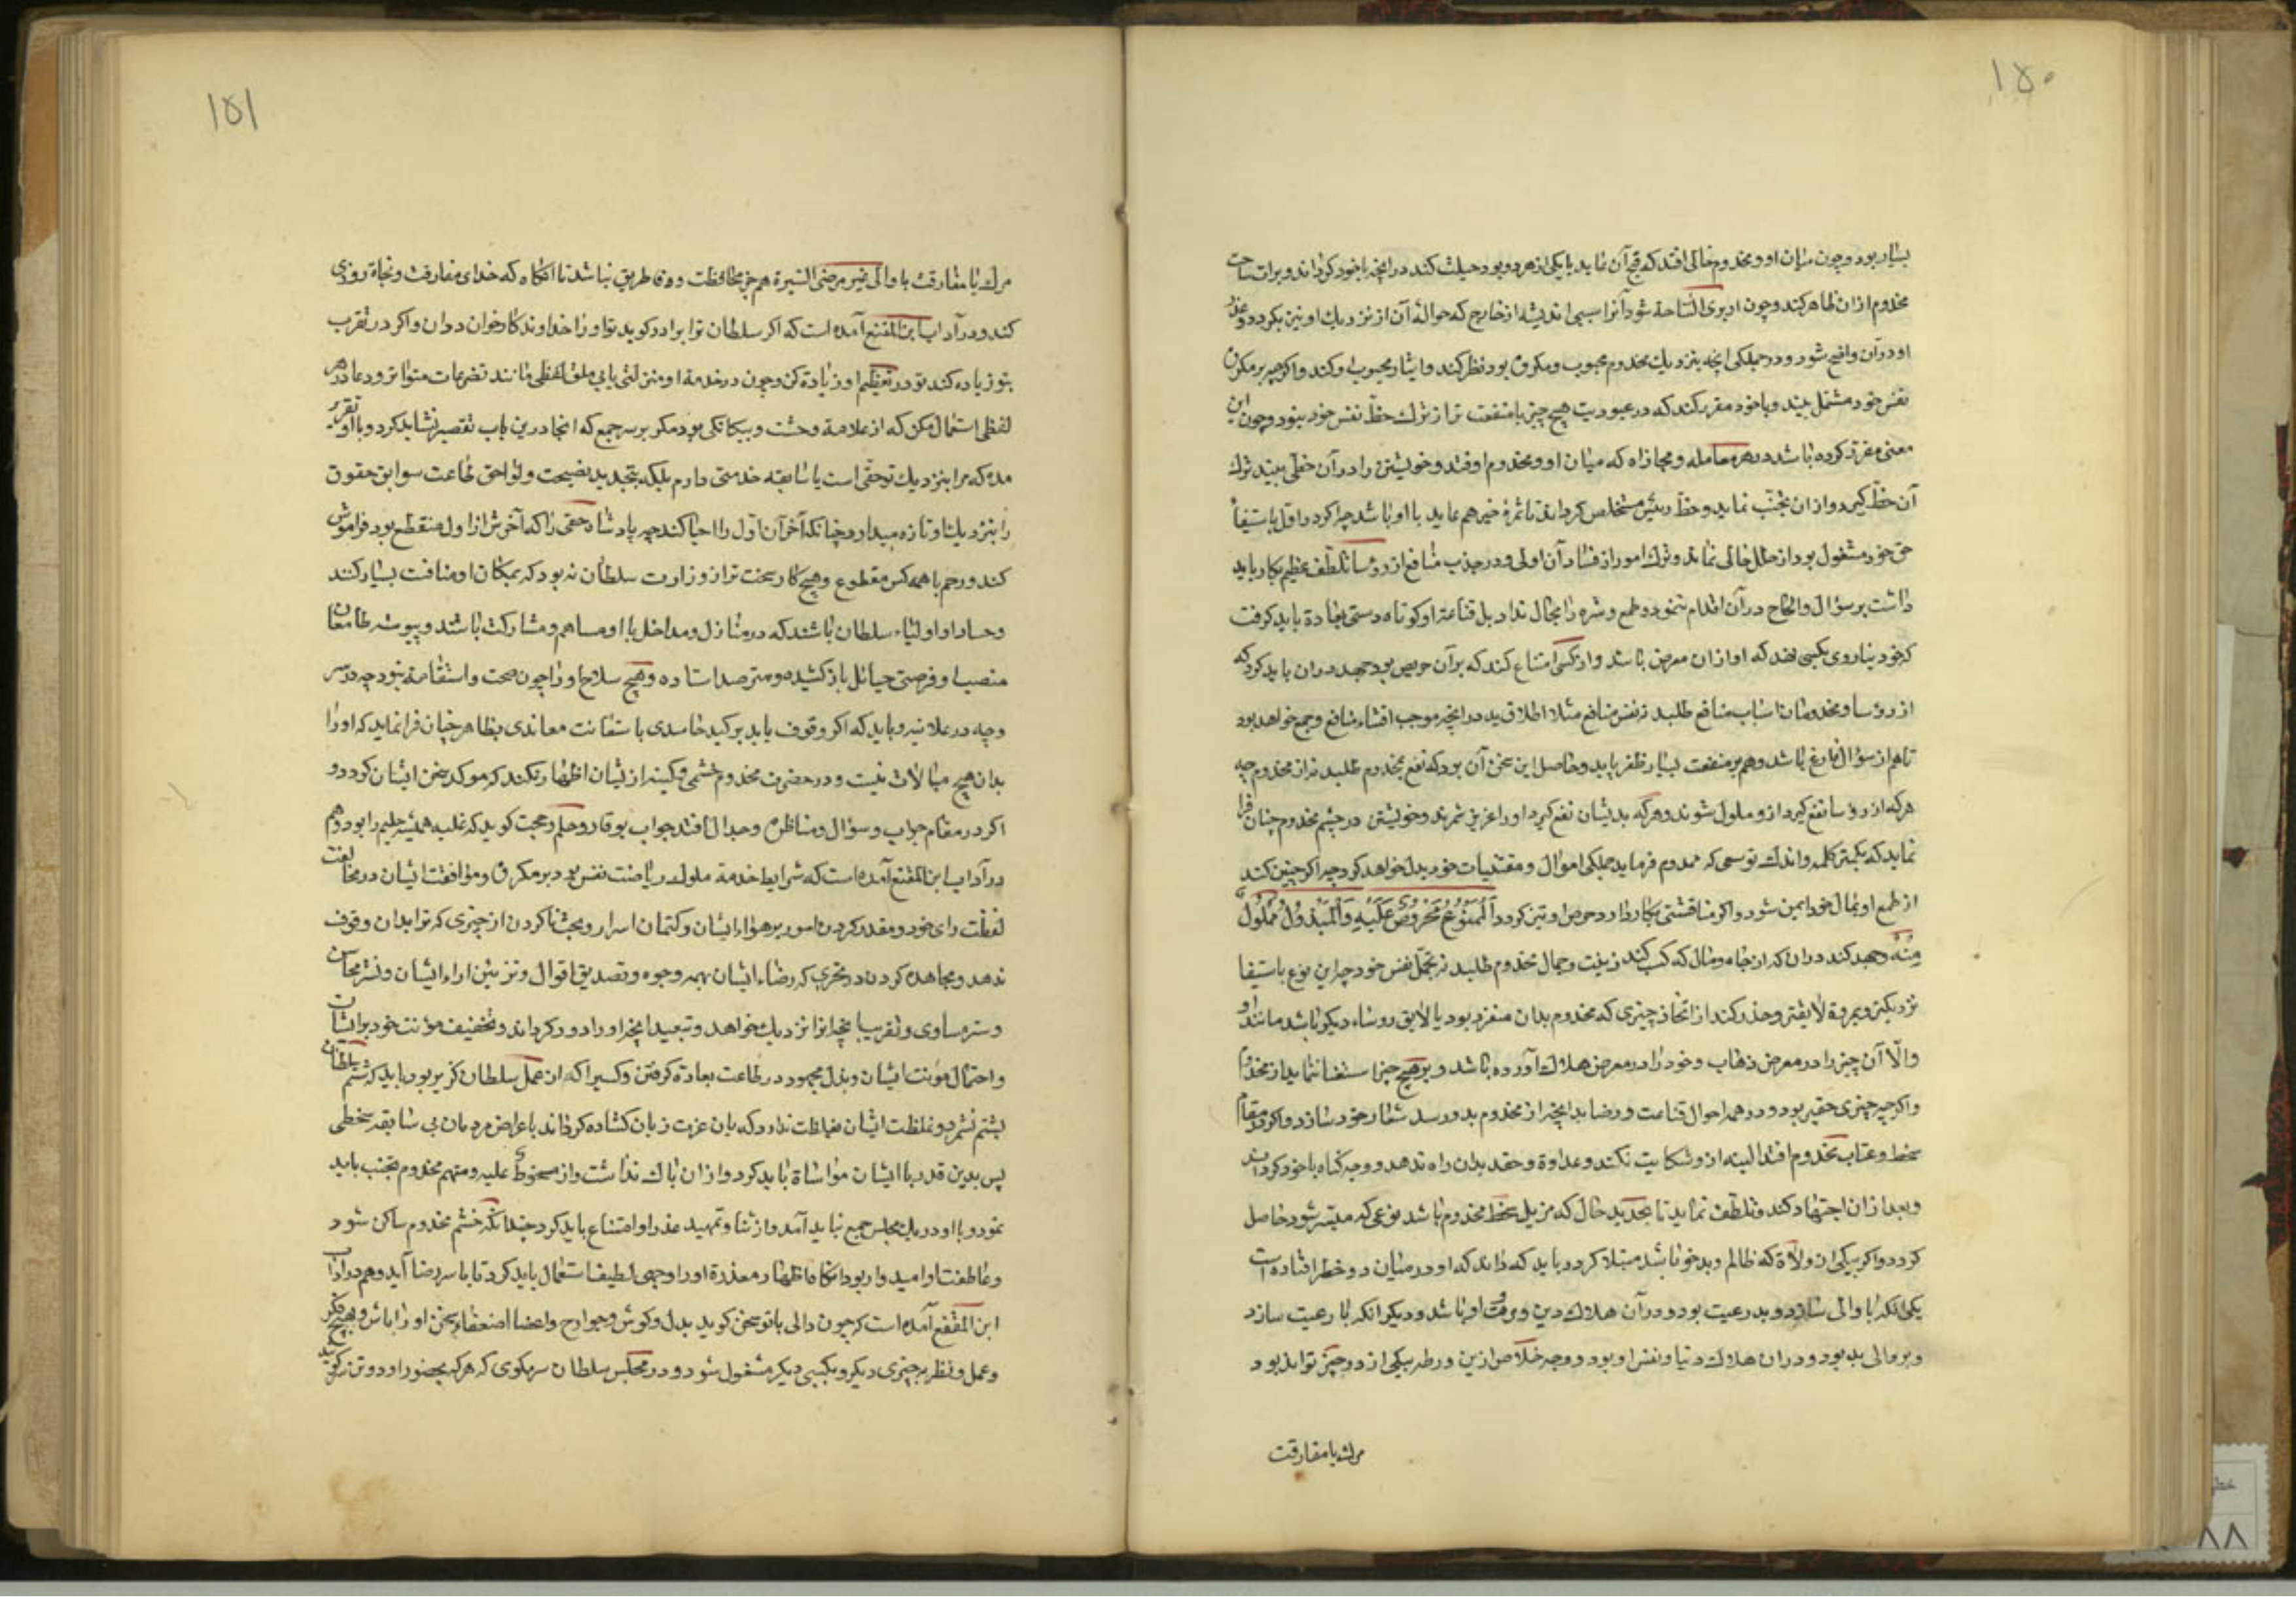 ۱۵۰
بسیار بود و چون میان او و مخدوم حالی افتد که قبح آن عاید با یکی از هر دو بود حیلت کند در انچه با خود گرداند و برات ساحت
مخدوم از ان ظاهر کند و چون او بری الساحة شود آنرا سببی اندیشد از خارج که حوالۀ آن از نزدیک او نیز بگردد و عذر
او در آن واضح شود و در جملگی انچه بنزدیک مخدوم محبوب و مکروه بود نظر کند و ایثار محبوب او کند و اگرچه بر مکروه
نفس خود مشتمل بیند و با خود مقرر کند که در عبودیت هیچ چیز با منفعت تر از ترک حظ نفس خود نبود و چون این
معنی مقرر کرده باشد در هر معامله و مجازاه که میان او و مخدوم اوفتد و خویشتن را در آن حظی بیند ترک
آن حظ گیرد و از ان تجنب نماید و حظ رئیس مستخلص گرداند تا ثمرۀ خیر هم عاید با او باشد چرا که در اول باستیفاء
حق خود مشغول بود از خلل خالی نماند و ترک امور از فساد آن اولی و در جذب منافع از رؤسا تلطف عظیم بکار باید
داشت بر سؤال و الحاح در آن اقدام ننمود و طمع و شره را مجال نداد بل قناعة او کوتاه دستی بعادة باید گرفت
که خود دنیا روی بکسی نهد که او از ان معرض باشد و از کسی امتناع کند که بر آن حریص بود جهد در ان باید کرد که
از رؤسا و مخدومان اسباب منافع طلبد نه نفس منافع مثلا اطلاق ید در انچه موجب اقتناء منافع و جمع خواهد بود
تا هم از سؤال فارغ باشد و هم بر منفعت بسیار ظفر یابد و حاصل این سخن آن بود که نفع بمخدوم طلبد نه از مخدوم چه
هر که از رؤسا نفع گیرد ازو ملول شوند و هر که بدیشان نفع گیرد او را عزیز شمرند و خویشتن در چشم مخدوم چنان فرا
نماید که بکمتر کلمه و اندک توسمی که مخدوم فرماید جملگی اموال و مقتنیات خود بدل خواهد کرد چه اگر چنین کند
از طمع او بمال خود ایمن شود و اگر مناقشتی بکار دارد حرص او تیز گردد اَلْمَمْنُوعُ مَحْرُوصٌ عَلَیْهِ وَالْمَبْذُولُ مَمْلُولٌ
مِنْهُ و جهد کند در ان که از جاه و مال که کسب کند زینت و جمال مخدوم طلبد نه تجمل نفس خود چه این نوع باستیفا
نزدیکتر و بمروة لایقتر و حذر کند از اتخاذ چیزی که مخدوم بدان منفرد بود یا لایق رؤساء دیگر باشد مانند او
والّا آن چیز را در معرض ذهاب و خود را در معرض هلاک آورده باشد و بر هیچ چیز استغنا ننماید از مخدوم
و اگرچه چیزی حقیر بود و در همه احوال قناعت و رضا بدانچه از مخدوم بدو رسد شعار خود سازد و اگر در مقام
سخط و عتاب مخدوم افتد البته ازو شکایت نکند و عداوة و حقد بدان راه ندهد و وجه گناه با خود گرداند
و بعد از ان اجتهاد کند و تلطف نماید تا تجدید حال که مزیل سخط مخدوم باشد بنوعی که میسّر شود حاصل
گردد و اگر بیکی از ولاة که ظالم و بدخو باشد مبتلا گردد باید که داند که او در میان دو خطر افتاده است
یکی انکه با والی سازد و بد رعیت بود و در آن هلاک دین و مروت او باشد و دیگر انکه با رعیت سازد
و بر والی بد بود و در ان هلاک دنیا و نفس او بود و وجه خلاص ازین ورطه بیکی از دو چیز تواند بود
مرک یا مفارقت
۱۵۱
مرک یا مفارقت با والی غیر مرضی السّیرة هم جز محافظت و وفا طریق نباشد تا انگاه که خدای مفارقت و نجاة روزی
کند و در آداب ابن المقفع آمده است که اگر سلطان ترا برادر کوید تو او را خداوندکار خوان دوان و اگر در تقرب
بتو زیاده کند تو در تعظیم او زیادة کن و چون در خدمة او منزلتی یابی ملق لفظی مانند تضرعات متواتر و دعا در هر
لفظی استعمال مکن که از علامة وحشت و بیکانکی بود مکر بر سر جمع که انجا درین باب تقصیر نشاید کرد و با او تقریر
مده که مرا بنزدیک تو حقی است یا سابقه خدمتی دارم بلکه بتجدید نصیحت و لواحق طاعت سوابق حقوق
را بنزدیک او تازه میدارد چنانکه آخر آن اول را احیا کند چه پادشاه حقی را که آخرش از اول منقطع بود فراموش
کند و رحم با همه کس مقطوع و هیچ کار سخت تر از وزارت سلطان نبود که بمکان او منافست بسیار کنند
و حساد او اولیاء سلطان باشند که در منازل و مداخل با او مساهم و مشارکت باشند و پیوسته طامعان
منصب او فرصتی حبائل باز کشیده و مترصد استاده و هیچ سلاح او را چون صحت و استقامة نبود چه در سر
و چه در علانیه و باید که اگر وقوف یابد بر کید حاسدی یا سعایت معاندی بظاهر چنان فرا نماید که او را
بدان هیچ مبالات نیست و در حضرت مخدوم خشمی و کینه از ایشان اظهار نکند که موکد سخن ایشان کردد و
اگر در مقام جواب و سؤال و مناظره و جدال افتد جواب بوقار و حلم و حجت کوید که غلبه همیشه حلیم را بود و هم
در آداب ابن المقفع آمده است که شرایط خدمة ملوک ریاضت نفس بود بر مکروه و موافقت ایشان در مخالفت
لغت رای خود و مقدر کردن امور بر هواء ایشان و کتمان اسرار و بحث ناکردن از چیزی که ترا بدان وقوف
ندهد و مجاهده کردن در تحری که رضاء ایشان بهمه وجوه و تصدیق اقوال و تزیین اراء ایشان و نشر محاسن
و ستر مساوی و تقریب انچه انرا نزدیک خواهد و تبعید انچه او را دور کرداند و تخفیف مؤنت خود بر ایشان
و احتمال مؤنت ایشان و بذل مجهود در طاعت بعادة کرفتن و کسی را که از عمل سلطان کزیر بود باید که شتم سلطان
بشتم نشمرد و غلظت ایشان بغلظت ندارد که باد عزت زبان کشاده کرداند باعراض مردمان بی سابقه سخطی
پس بدین قدر با ایشان مواساة باید کرد و از ان باک نداشت و از مسخوط علیه و متهم مخدوم تجنب باید
نمود و با او در یک مجلس جمع نباید آمد و از ثنا و تمهید عذر او امتناع باید کرد چندانکه خشم مخدوم ساکن شود
و عاطفت او امیدوار بود انگاه اظهار معذرة او را وجهی لطیف استعمال باید کرد تا با سر رضا آید و هم در آداب
ابن المقفع آمده است که چون والی با تو سخن کوید بدل و کوش و جوارح و اعضا اصغاء سخن او را باش و بهیچ فکر
و عمل و نظر بر چیزی دیکر و بکسی دیکر مشغول شو و در مجلس سلطان سر مکوی که هر که بحضور او دو تن